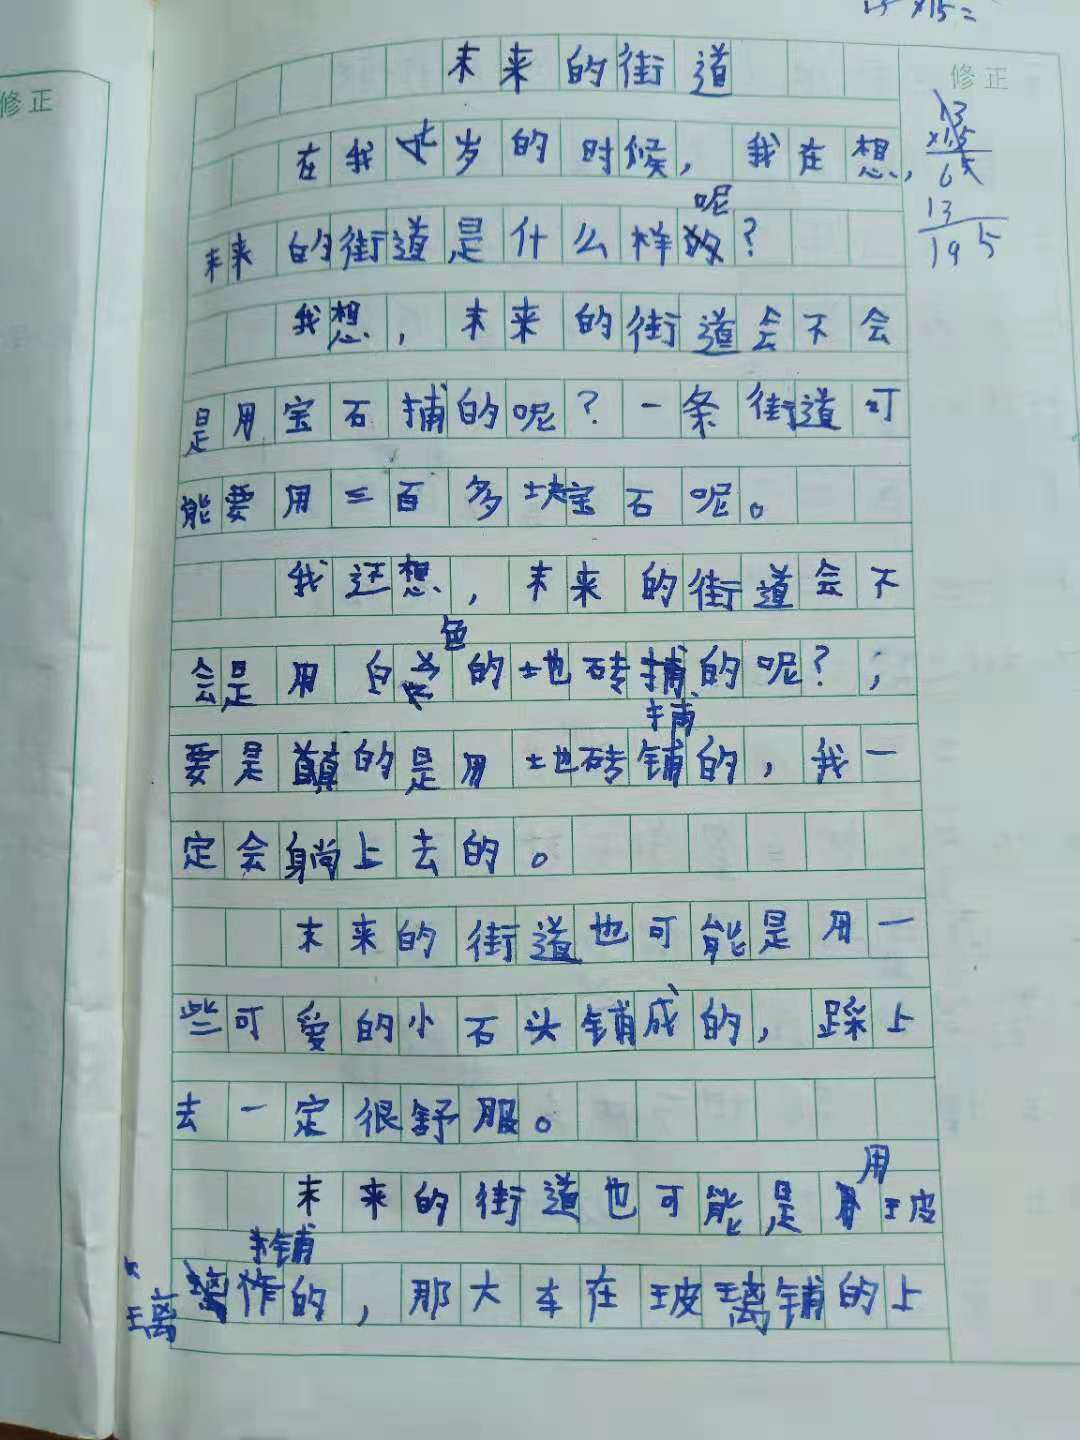 ×15=
修正
修正
未来的街道
在我七岁的时候，我在想，
呢
未来的街道是什么样的？
我想，未来的街道会不会
是用宝石捕的呢？一条街道可
能要用三百多块宝石呢。
我还想，未来的街道会不
色
会是用白的地砖捕的呢？；
要是真的是用地砖铺的，我一
定会躺上去的。
未来的街道也可能是用一
些可爱的小石头铺成的，踩上
去一定很舒服。
用
未来的街道也可能是玻
铺
璃作的，那大车在玻璃铺的上
13
×15
65
13
195